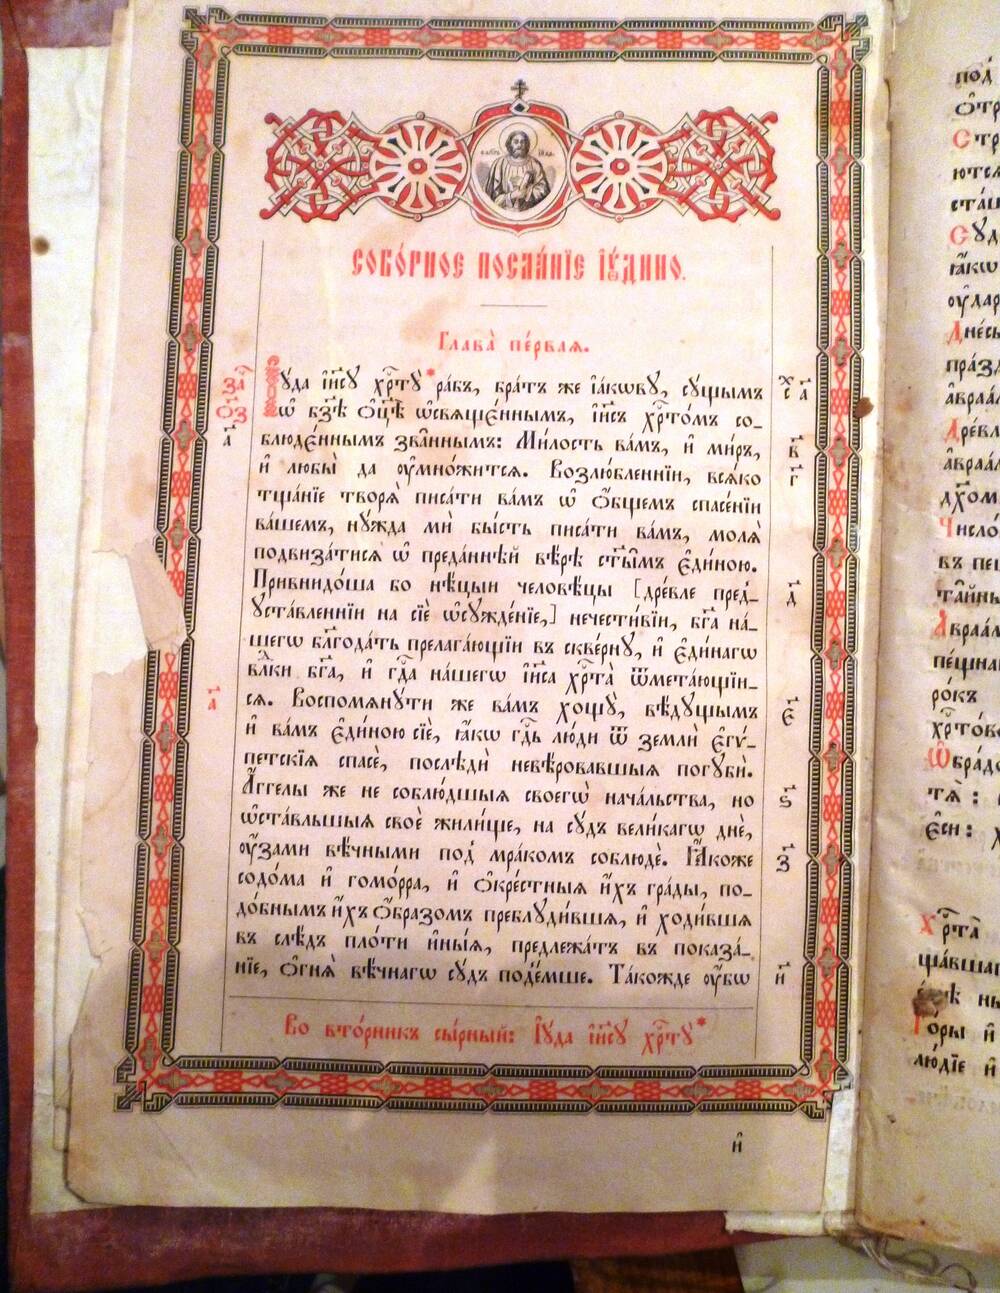 СОБО́РНОЕ ПОСЛА́НІЕ І҆ꙋ́ДИНО.
Глава̀ пе́рваѧ.
І҆ꙋда і҆и҃сꙋ хрⷭ҇тꙋ* ра́бъ, бра́тъ же і҆а́кѡвꙋ, сꙋ́щымъ
ѡ҆ бз҃ѣ ѻ҆ц҃ѣ ѡ҆свѧще́ннымъ, і҆и҃съ хрⷭ҇то́мъ со-
блюдє́ннымъ зва̑ннымъ: Ми́лость ва́мъ, и҆ ми́ръ,
и҆ любы̀ да ᲂу҆мно́житсѧ. Возлю́бленнїи, всѧ́ко
тща́нїе творѧ̀ писа́ти ва́мъ ѡ҆ ѻ҆́бщемъ спасе́нїи
ва́шемъ, нꙋ́жда мѝ бы́сть писа́ти ва́мъ, молѧ̀
подвиза́тисѧ ѡ҆ преда́ннѣй вѣ́рѣ ст҃ы̑мъ є҆ди́ною.
Привнидо́ша бо нѣ́цыи человѣ́цы [дре́вле пред̾-
ᲂуста́вленнїи на сїѐ ѡ҆сꙋжде́нїе,] нечести́вїи, бг҃а на́-
шегѡ бл҃года́ть прелага́ющїи въ скве́рнꙋ, и҆ є҆ди́нагѡ
влⷣки бг҃а, и҆ гдⷭ҇а на́шегѡ і҆и҃са хрⷭ҇та̀ ѿмета́ющїи-
сѧ. Воспомѧнꙋ́ти же ва́мъ хощꙋ̀, вѣ́дꙋщымъ
и҆ ва́мъ є҆ди́ною сїѐ, ꙗ҆́кѡ гдⷭ҇ь лю́ди ѿ землѝ є҆гѵ́-
петскїѧ спасѐ, послѣдѝ невѣ́ровавшыѧ погꙋбѝ.
А҆́ггелы же не соблю́дшыѧ своегѡ̀ нача́льства, но
ѡ҆ста́вльшыѧ своѐ жили́ще, на сꙋ́дъ вели́кагѡ днѐ,
ᲂу҆́зами вѣ́чными под̾ мра́комъ соблюдѐ. Ꙗ҆́коже
содо́ма и҆ гомо́рра, и҆ ѻ҆кре́стныѧ и҆́хъ гра́ды, по-
до́бнымъ и҆̀хъ ѻ҆́бразомъ преблꙋди́вшѧ, и҆ ходи́вшѧ
въ слѣ́дъ пло́ти и҆ны́ѧ, предлежа́тъ въ показа́-
нїе, ѻ҆гнѧ̀ вѣ́чнагѡ сꙋ́дъ под̾е́мше. Та́кожде ᲂу҆́бѡ
Во вто́рникъ сы́рный: І҆ꙋ́да і҆и҃сꙋ хрⷭ҇тꙋ*
и҆
за҃
ѻ҃з
а҃
а҃
хⷭ҇ а҃
в҃
г҃
д҃
є҃
ѕ҃
з҃
и҃
под̾
ста́ш
Сꙋд
ꙗ҆́кѡ
ᲂу҆дар
Дне́сь
пра́зд
а҆враа́
Дре́вл
а҆враа́м
дꙋ҃хом
Число̀
въ пещ
та̑йны
А҆враа́м
пе́щнаг
ро́къ
хрⷭ҇то́во
Ѡ҆бра́до
тѧ̀ :
є҆сѝ :
хрⷭ҇та̀
ща́вшаг
Го́ры и҆
лю́дїе и҆